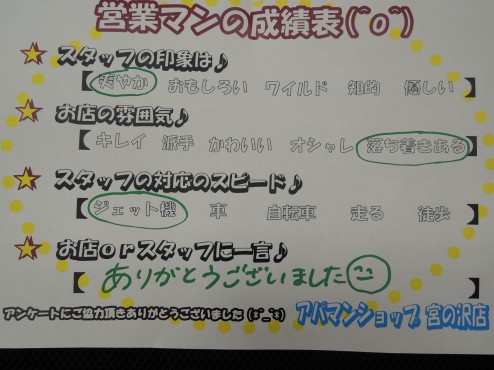 営業マンの成績表(~o~)
スタッフの印象は♪
【 爽やか おもしろい ワイルド 知的 優しい 】
お店の雰囲気♪
【 キレイ 派手 かわいい オシャレ 落ち着きある】
スタッフの対応のスピード♪
【 ジェット機 車 自転車 走る 徒歩 】
お店orスタッフに一言♪
【 ありがとうございました 】
アンケートにご協力頂きありがとうございました(*^_^*) アパマンショップ 宮の沢店